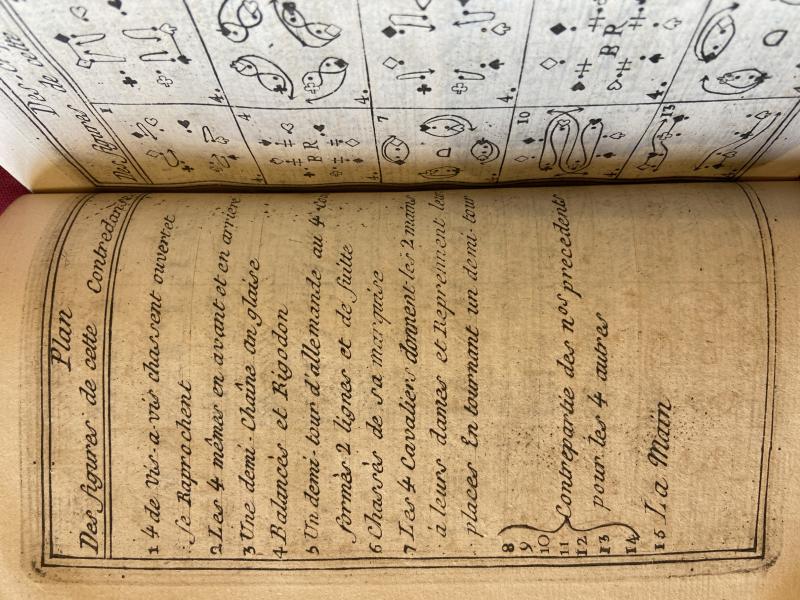 Plan
Des figures de cette contredanse
1 4 de Vis-a-vis chassent ouvert et
se Raprochent
2 Les 4 mêmes en avant et en arriere
3 Une demi-Chaîne anglaise
4 Balancés et Rigodon
5 Un demi-tour d'allemande au 4 coins
formés 2 lignes et de suitte
6 Chassés de sa marquise
7 Les 4 Cavaliers donnent les 2 mains
á leurs dames et Reprennent leur
places En tournant un demi-tour
8
9
10
11 Contrepartie des nos precedents
12 pour les 4 autres
13
14
15 La Main
Des figures de
1
4
7
10
13
4.
4.
4.
4.
B R
B R